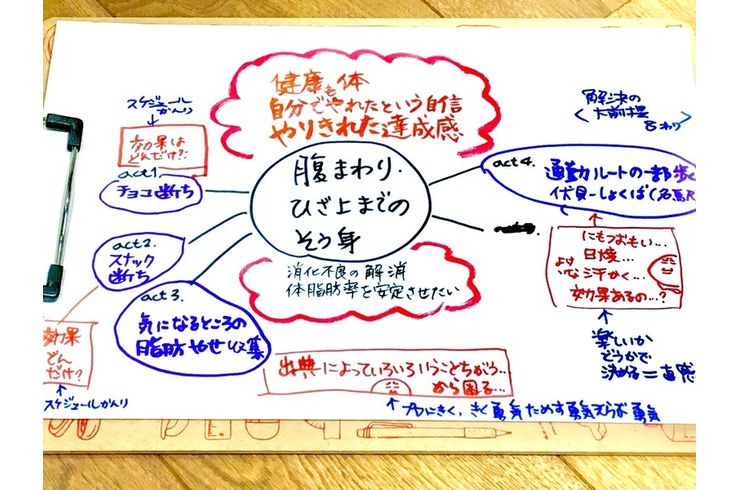 スケジュール
かんり
効果は
どんだけ?!
act1.
チョコ断ち
act2.
スナック
断ち
act3
気になるところの
脂肪やせ収集
効果
どん
だけ?
スケジュールかんり
健康な体
自分でやれたという自信
やりきれた達成感
腹まわり.
ひざ上までの
そう身
消化不良の解消
体脂肪率を安定させたい
出典によっていろいろいうことちがう…
から困る…
プロにきく,きく勇気ためす勇気えらぶ勇気
解決の
大前提
act4.
通勤ルートの一部歩く
伏見-しょくば(名駅
にもつおもい…
日焼…
よけいな汗かく…
効果あるの…?
楽しいか
どうかで
決める=直感